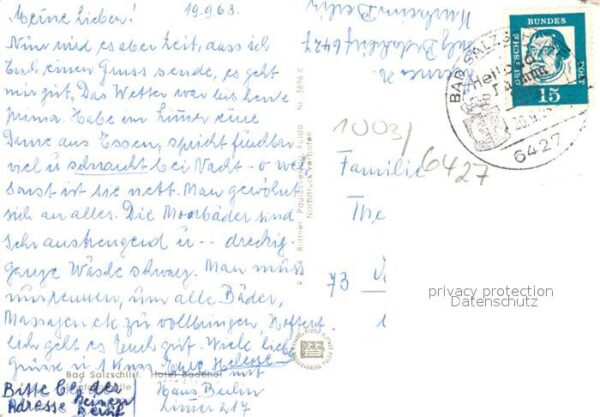 Meine Lieben! 19.9.63.
Nun wird es aber Zeit, dass ich
Euch einen Gruss sende, es geht
mir gut. Das Wetter war bis heute
prima. Habe im Zimmer eine
Dame aus Essen, spricht furchtbar
viel u schnarcht bei Nacht - o weh
sonst ist sie nett. Man gewöhnt
sich an alles. Die Moorbäder sind
sehr anstrengend u -- dreckig.
ganze Wäsche schwarz. Man muss
nur rennen, um alle Bäder,
Massagen etc zu vollbringen, Hoffent
lich geht es Euch gut. Viele liebe
Grüsse u 1 Kuss Eure Helene
Bad Salzschlirf Hotel Badehof
Bitte bei der
Adresse keinen
Beruf
mit
Haus Berlin
Zimmer 217
Rüttner Pauliessee Fulda Nr. 5696
Nachdruck verboten
Kurheim Berlin
6427
BAD SALZSCHLIRF
Heilbad
20.9.
6427
DEUTSCHE BUNDESPOST
15
1003/
6427
Familie
The
73
privacy protection
Datenschutz